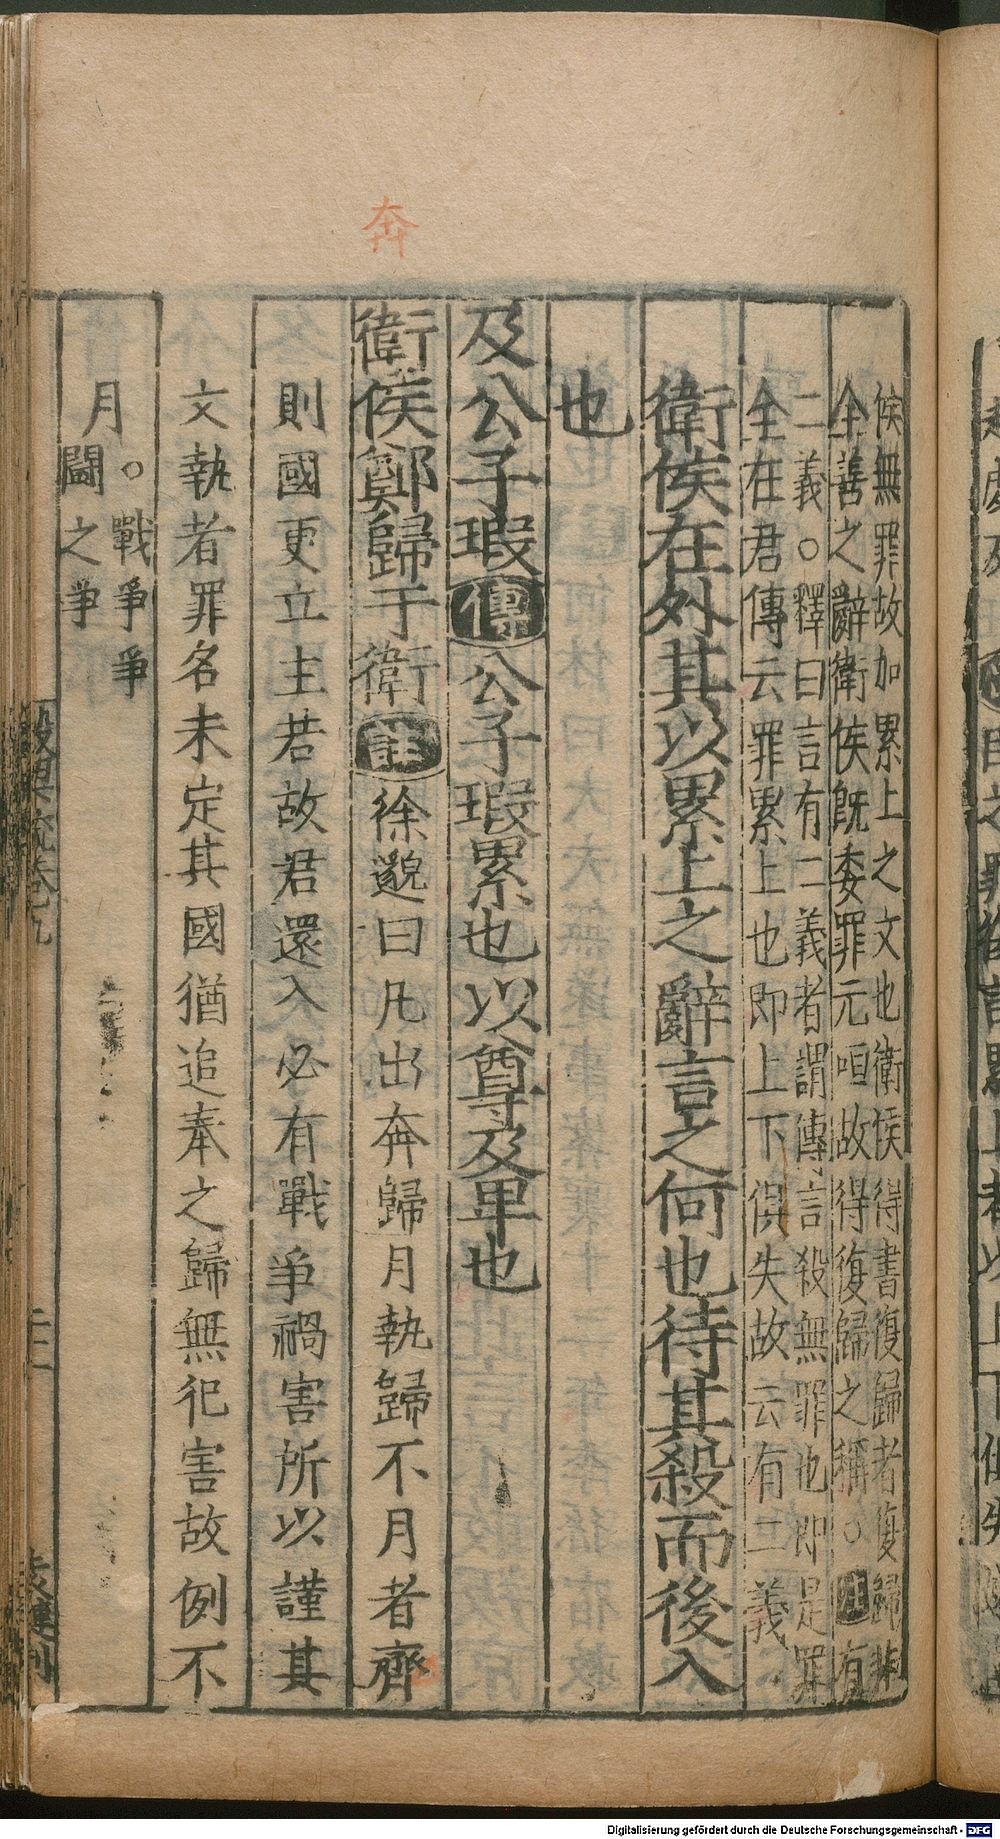 奔
侯無罪故加累上之文也衛侯得書復歸者復歸非
全善之辭衛侯旣委罪元咺故得復歸之稱○注有
二義○釋曰言有二義者謂傳言殺無罪也即是罪
全在君傳云罪累上也即上下俱失故云有二義
衛侯在外其以累上之辭言之何也待其殺而後入
也
及公子瑕傳公子瑕累也以尊及卑也
衛侯鄭歸于衛註徐邈曰凡出奔歸月執歸不月者齊
則國更立主若故君還入必有戰爭禍害所以謹其
文執者罪名未定其國猶追奉之歸無犯害故例不
月○戰爭爭
鬬之爭
穀梁疏卷九
Digitalisierung gefördert durch die Deutsche Forschungsgemeinschaft - DFG